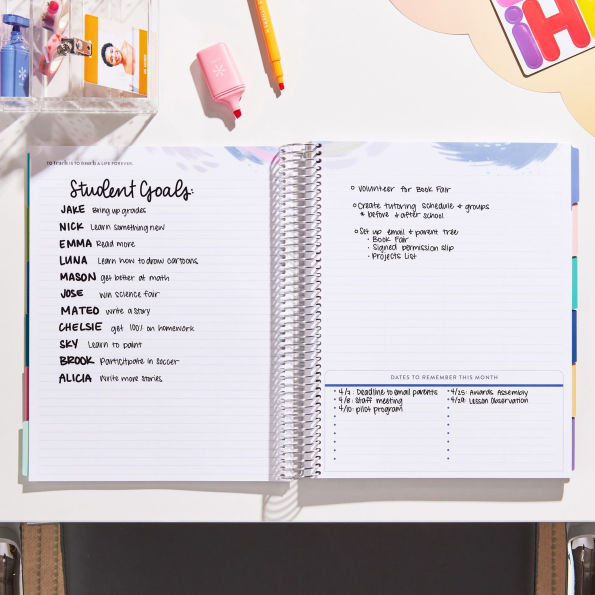 to teach is to touch a life forever.
Student Goals:
JAKE Bring up grades
NICK Learn something new
EMMA Read more
LUNA Learn how to draw cartoons
MASON get better at math
JOSE win science fair
MATEO write a story
CHELSIE get 100% on homework
SKY Learn to paint
BROOK Participate in soccer
ALICIA Write more stories
Volunteer for Book Fair
Create tutoring schedule & groups
* before & after school
Set up email & parent tree
· Book Fair
· Signed permission slip
· Projects List
DATES TO REMEMBER THIS MONTH
• 4/7: Deadline to email parents
• 4/8: Staff meeting
• 4/10: pilot program
• 4/25: Awards Assembly
• 4/29: Lesson Observation
iH